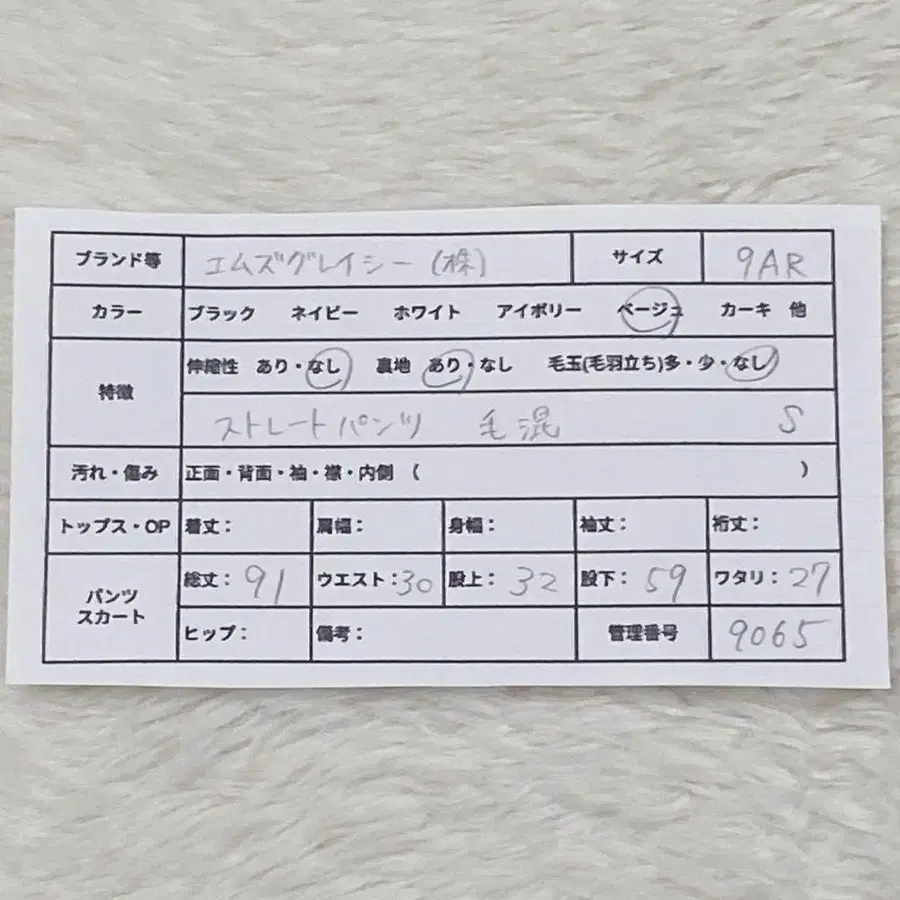 ブランド等 エムズグレイシー (株) サイズ 9AR
カラー ブラック ネイビー ホワイト アイボリー ベージュ カーキ 他
特徴 伸縮性 あり・なし 裏地 あり・なし 毛玉(毛羽立ち)多・少・なし
ストレートパンツ 毛混 S
汚れ・傷み 正面・背面・袖・襟・内側 ( )
トップス・OP 着丈: 肩幅: 身幅: 袖丈: 裄丈:
パンツ スカート 総丈: 91 ウエスト:30 股上: 32 股下: 59 ワタリ: 27
ヒップ: 備考: 管理番号 9065